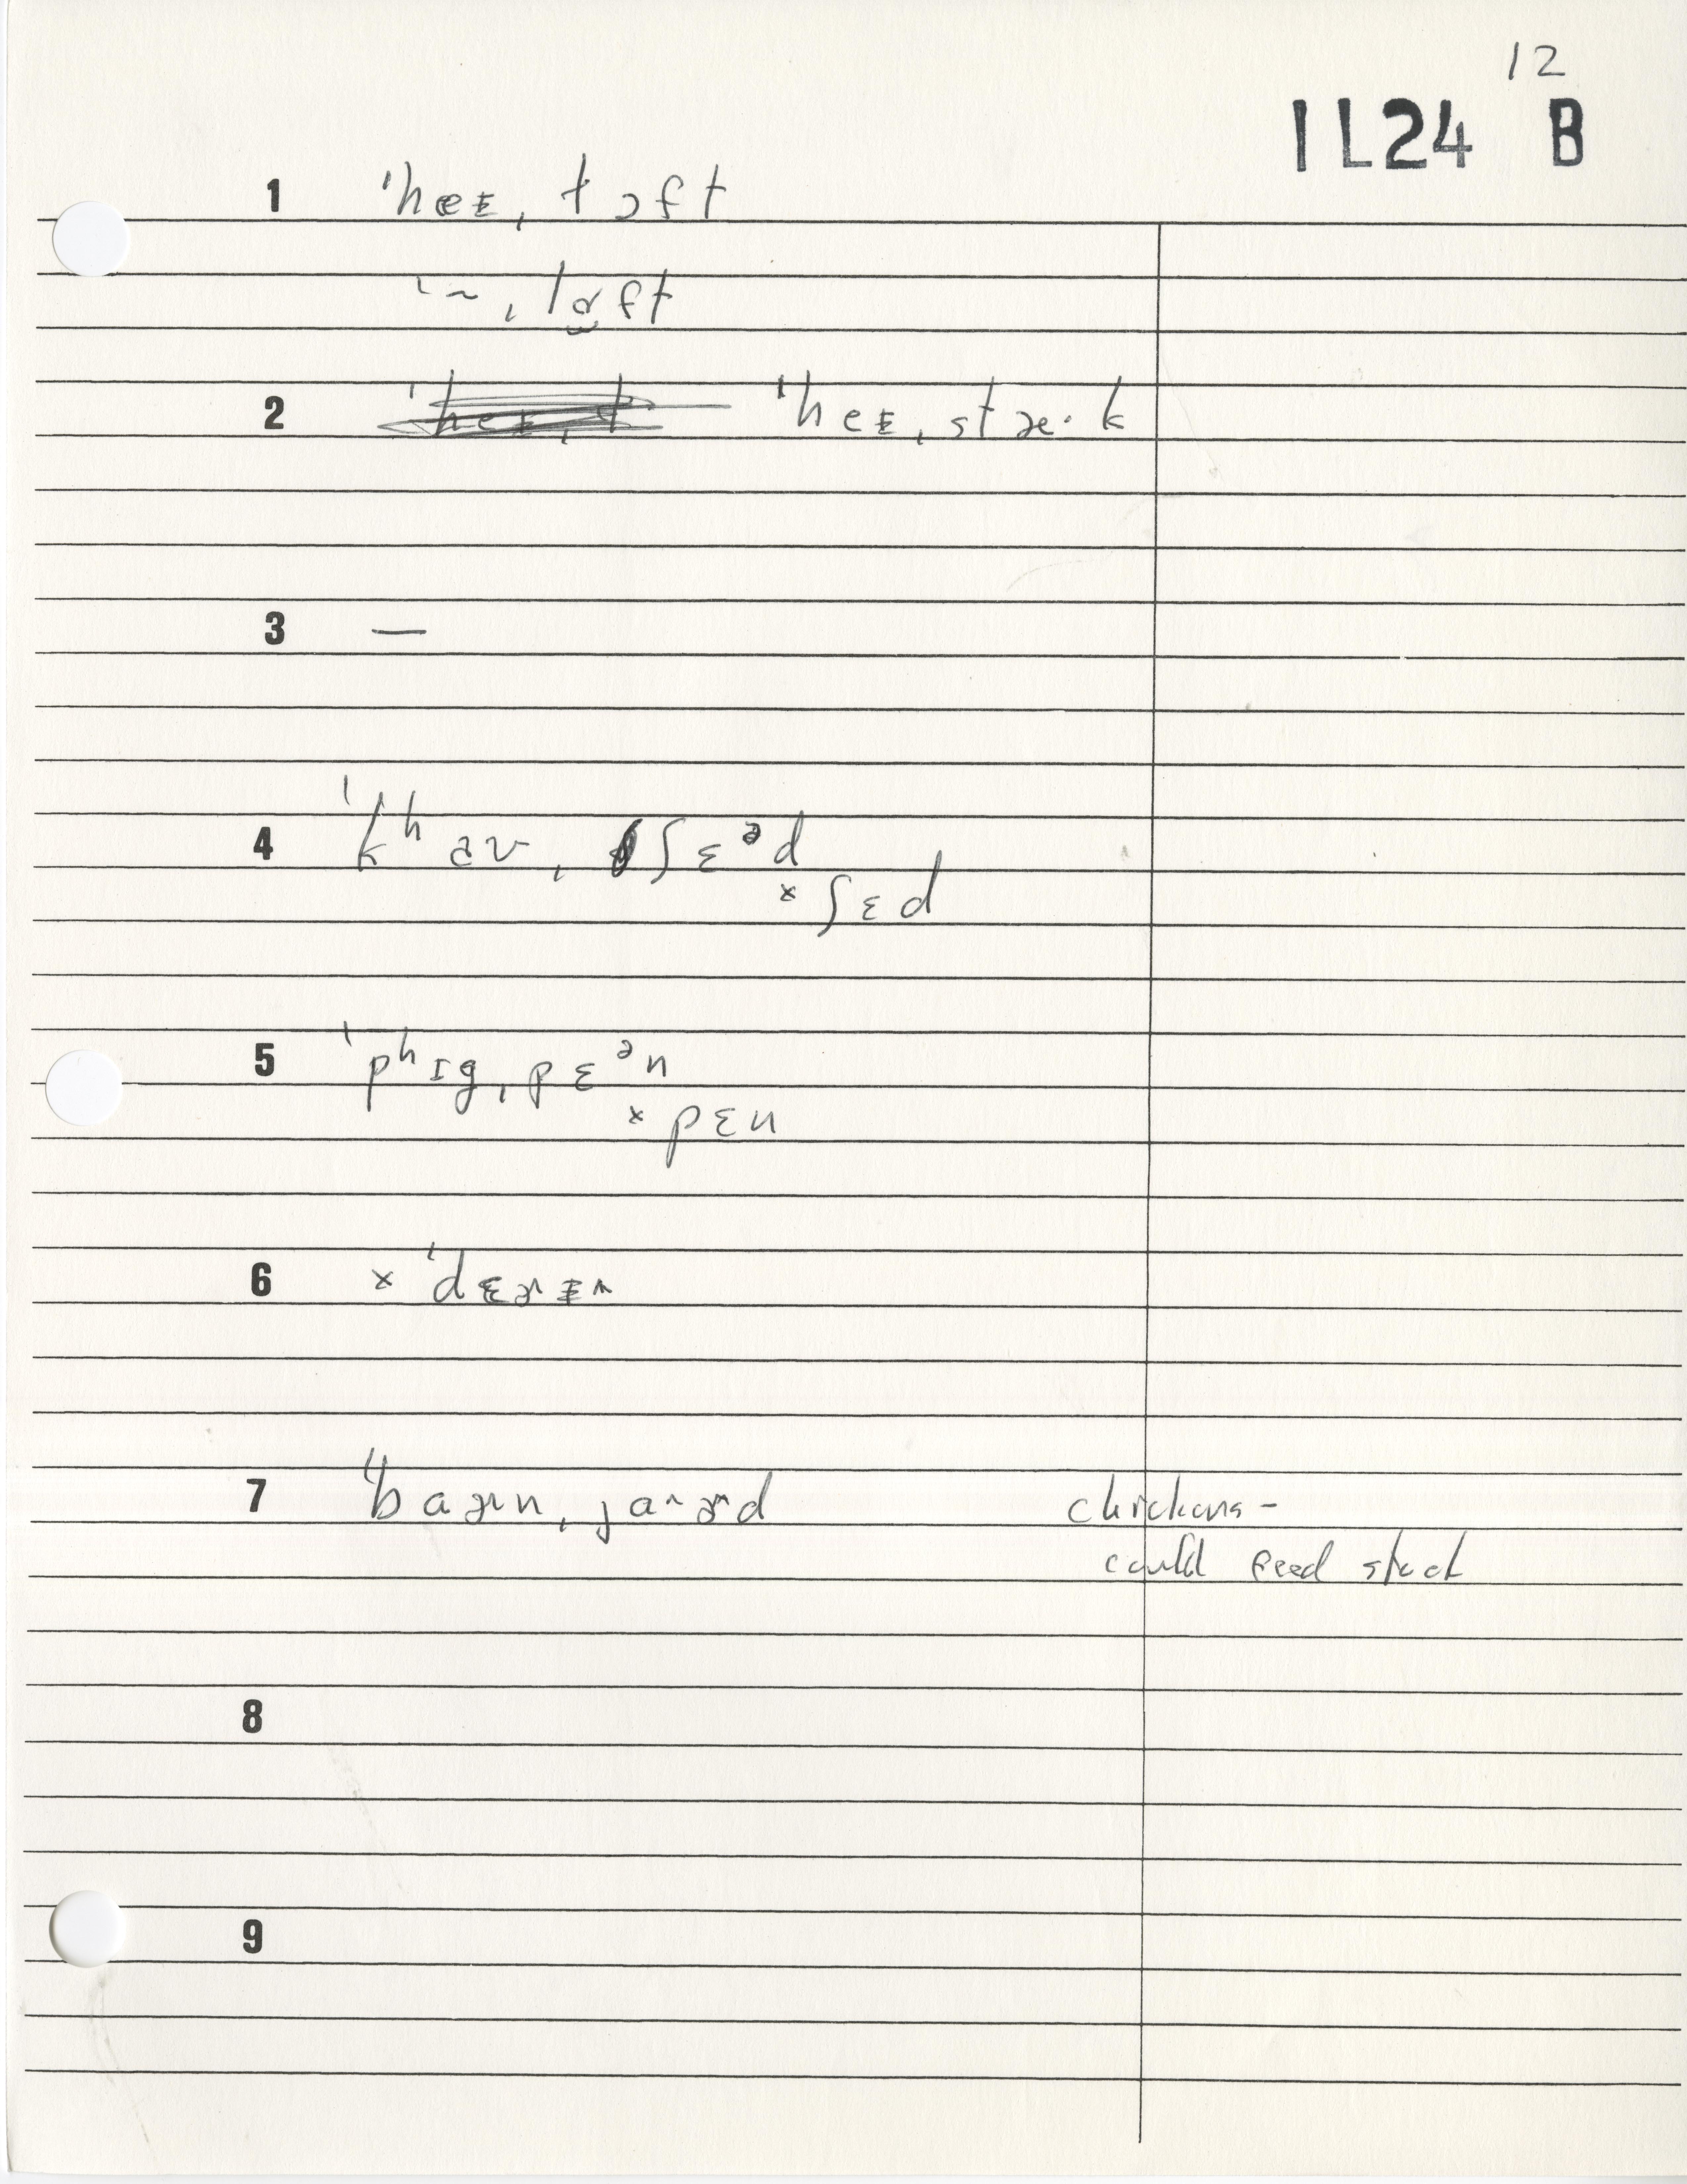 12
1L24 B
1 ˈheɪ̵ˌtɔft
ˈ~ˌlɑft
2 ˈheɪ̵ˌstæ·k
3 —
4 ˈkʰaʊˌʃɛᵊd
× ʃɛd
5 ˈpʰɪgˌpɛᵊn
× pɛn
6 × ˈdɛɚɪ̵
7 ˈbaɚnˌjaɚd chickens -
could feed stock
8
9